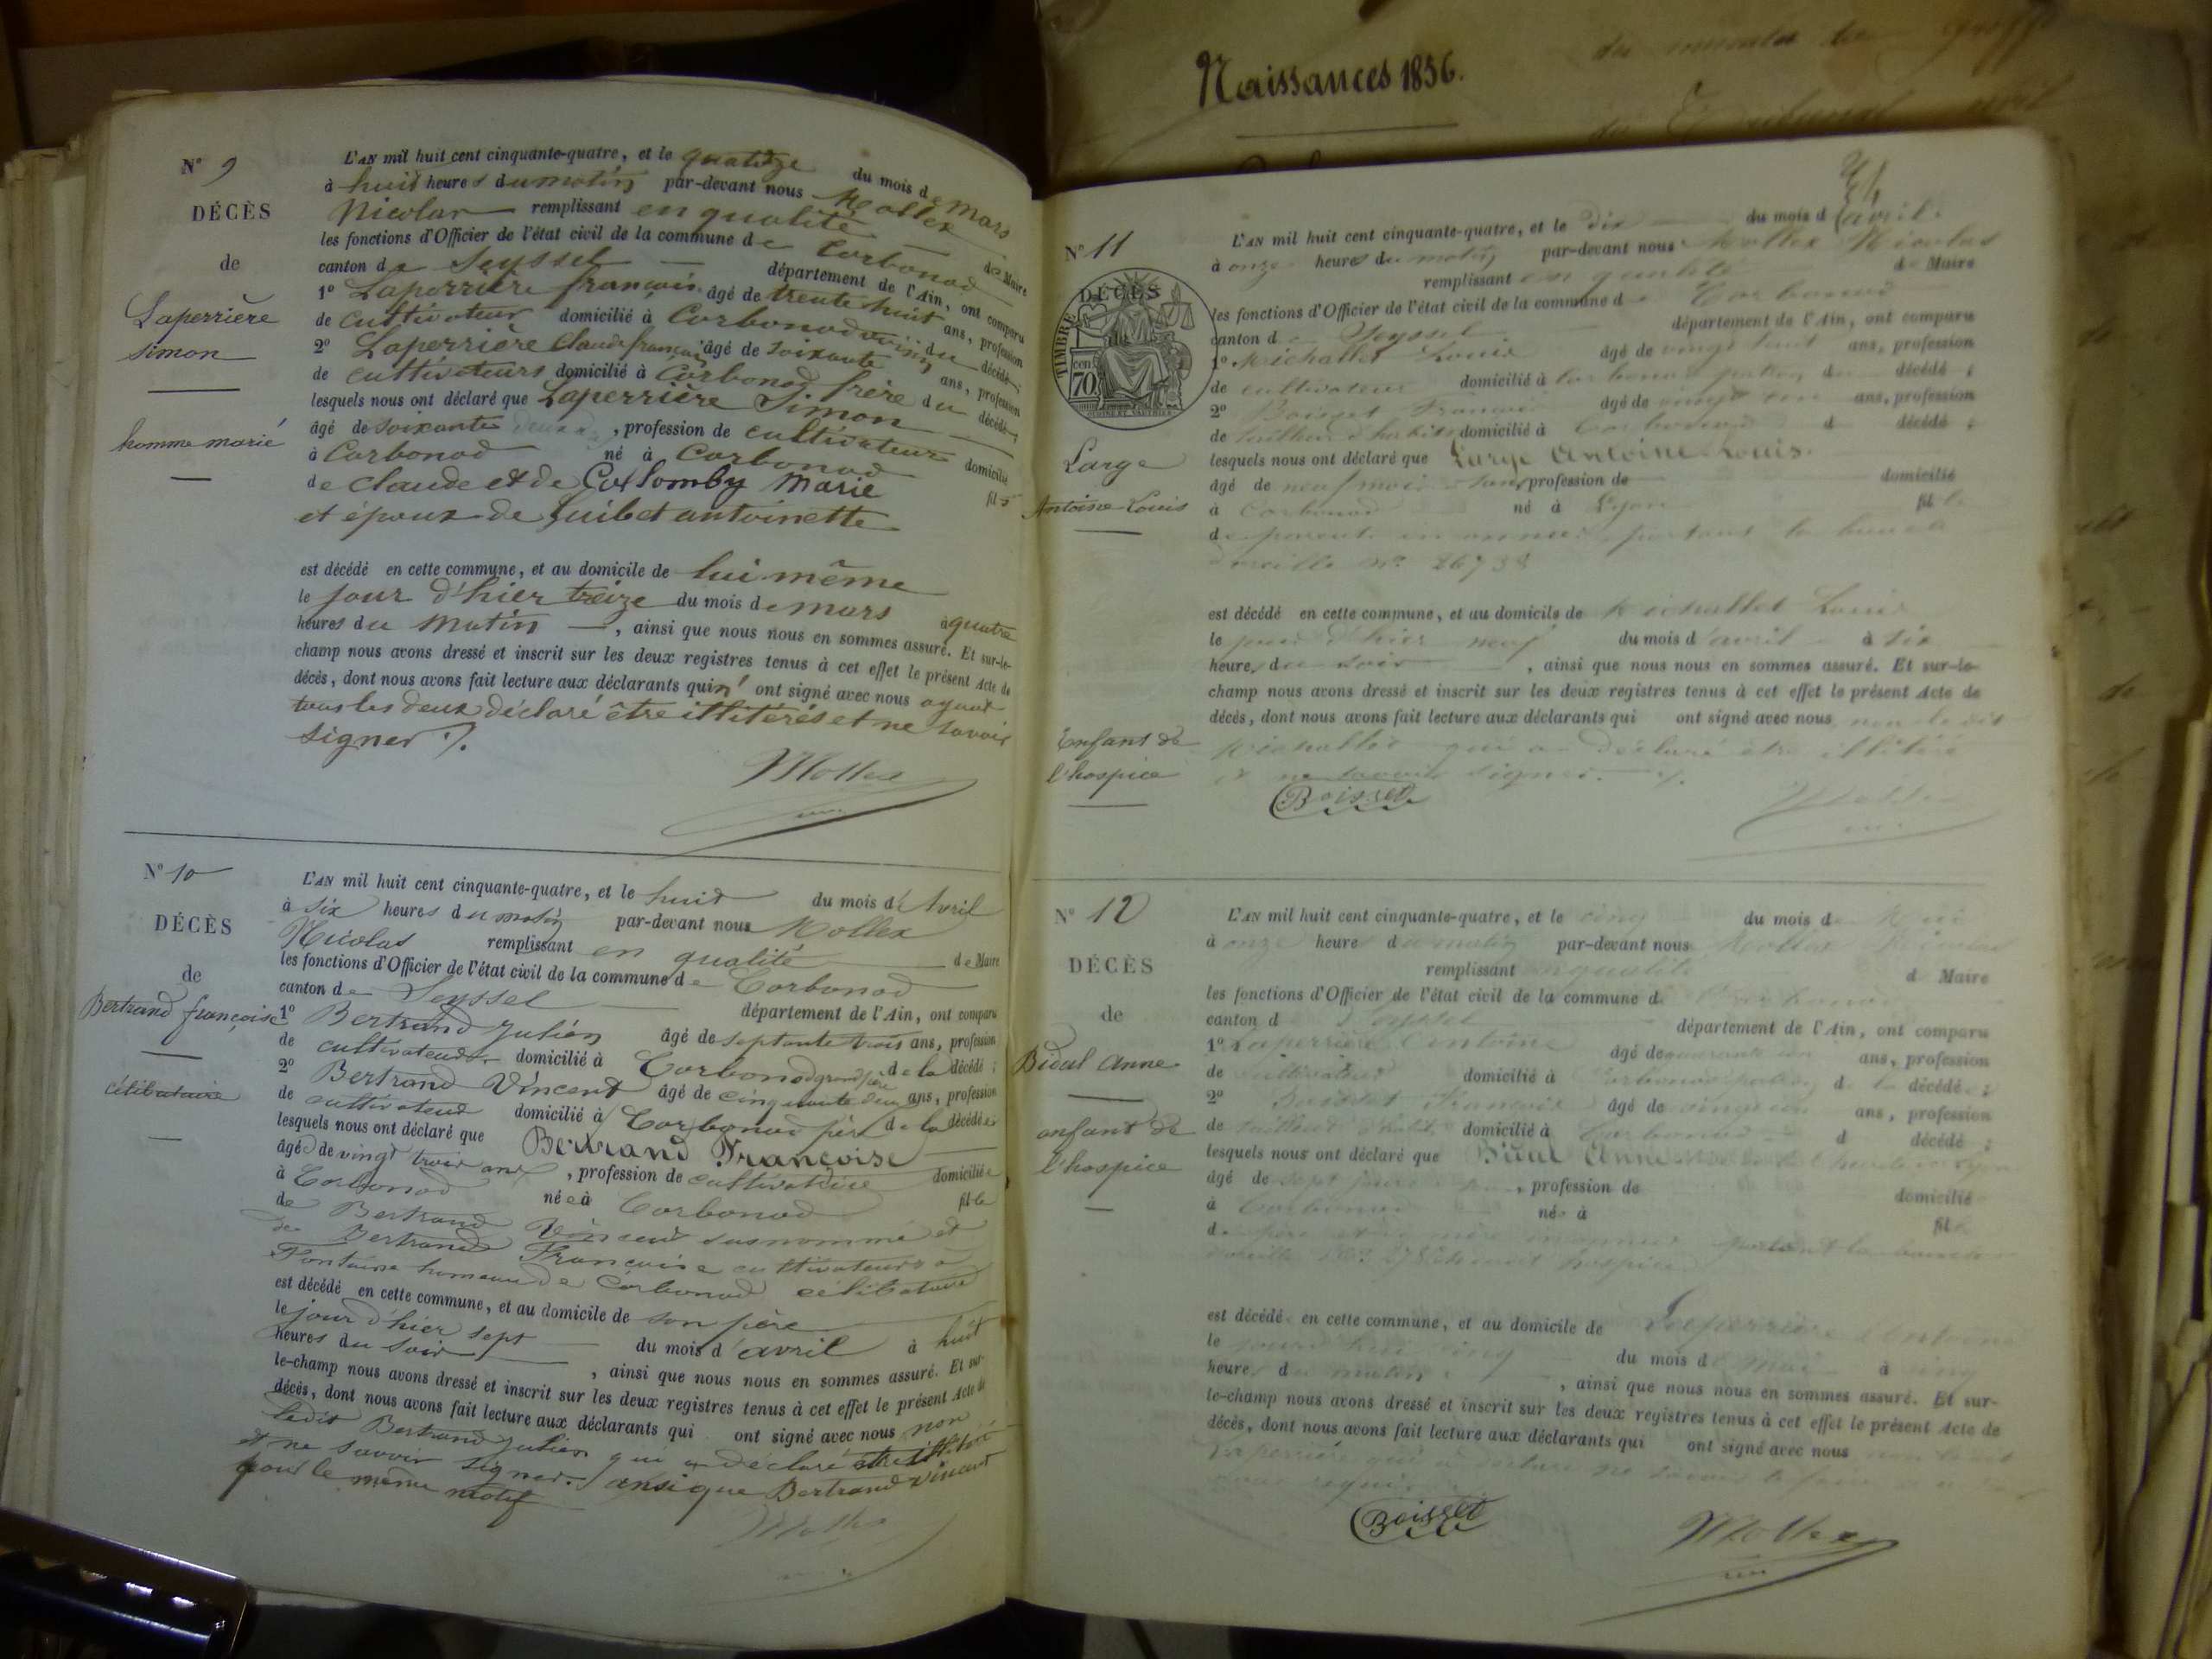 Naissances 1856.
N° 9
DÉCÈS
de
Laperrière
Simon
homme marié
L'AN mil huit cent cinquante-quatre, et le quatorze du mois de Mars
à huit heures du matin par-devant nous Mollex
Nicolas remplissant en qualité de Maire
les fonctions d'Officier de l'état civil de la commune de Corbonod
canton de Seyssel département de l'Ain, ont comparu
1° Laperrière françois âgé de trente huit ans, profession
de cultivateur domicilié à Corbonod voisin du décédé;
2° Laperrière Claude françois âgé de soixante ans, profession
de cultivateurs domicilié à Corbonod frère du décédé;
lesquels nous ont déclaré que Laperrière Simon
âgé de soixante , profession de cultivateur domicilié
à Corbonod né à Corbonod fils
de Claude et de Collomby Marie
et époux de Guilet antoinette
est décédé en cette commune, et au domicile de lui même
le jour d'hier treize du mois de mars à quatre
heures du matin , ainsi que nous nous en sommes assuré. Et sur-le-
champ nous avons dressé et inscrit sur les deux registres tenus à cet effet le présent Acte de
décès, dont nous avons fait lecture aux déclarants qui n' ont signé avec nous ayant
tous les deux déclaré être illitérés et ne savoir
signer ./.
Mollex
N° 10
DÉCÈS
de
Bertrand françoise
célibataire
L'AN mil huit cent cinquante-quatre, et le huit du mois d'Avril
à six heures du matin par-devant nous Mollex
Nicolas remplissant en qualité de Maire
les fonctions d'Officier de l'état civil de la commune de Corbonod
canton de Seyssel département de l'Ain, ont comparu
1° Bertrand Julien âgé de septante trois ans, profession
de cultivateur domicilié à Corbonod grand père de la décédé;
2° Bertrand Vincent âgé de cinquante deux ans, profession
de cultivateur domicilié à Corbonod père de la décédée
lesquels nous ont déclaré que Bertrand Françoise
âgé de vingt trois ans , profession de cultivatrice domiciliée
à Corbonod née à Corbonod fille
de Bertrand Vincent susnommé et
de Bertrand Françoise cultivateurs à
Fontaine hameau de Corbonod célibataire
est décédé en cette commune, et au domicile de son père
le jour d'hier sept du mois d'avril à huit
heures du soir , ainsi que nous nous en sommes assuré. Et sur-
le-champ nous avons dressé et inscrit sur les deux registres tenus à cet effet le présent Acte de
décès, dont nous avons fait lecture aux déclarants qui ont signé avec nous non
ledit Bertrand Julien qui a déclaré être illitéré
et ne savoir signer ./ ansi que Bertrand Vincent
pour le même motif
Mollex
N° 11
TIMBRE
DÉCÈS
de
cen
70
Large
Antoine Louis
Enfant de
l'hospice
L'AN mil huit cent cinquante-quatre, et le dix du mois d'avril.
à onze heures du matin par-devant nous Mollex Nicolas
remplissant en qualité de Maire
les fonctions d'Officier de l'état civil de la commune de Corbonod
canton de Seyssel département de l'Ain, ont comparu
1° Michallet Louis âgé de vingt huit ans, profession
de cultivateur domicilié à Corbonod du décédé;
2° Boisset François âgé de vingt ans, profession
de tailleur d'habits domicilié à Corbonod d décédé;
lesquels nous ont déclaré que Large Antoine Louis.
âgé de neuf mois , profession de domicilié
à Corbonod né à Lyon fils
de parents inconnus portant la boucle
d'oreille n° 26738
est décédé en cette commune, et au domicile de Michallet Louis
le jour d'hier neuf du mois d'avril à six
heures du soir , ainsi que nous nous en sommes assuré. Et sur-le-
champ nous avons dressé et inscrit sur les deux registres tenus à cet effet le présent Acte de
décès, dont nous avons fait lecture aux déclarants qui ont signé avec nous non le dit
Michallet qui a déclaré être illitéré
et ne savoir signer. ./.
Boisset
Mollex
N° 12
DÉCÈS
de
Bidal Anne
enfant de
l'hospice
L'AN mil huit cent cinquante-quatre, et le cinq du mois de Mai
à onze heures du matin par-devant nous Mollex Nicolas
remplissant en qualité de Maire
les fonctions d'Officier de l'état civil de la commune de Corbonod
canton de Seyssel département de l'Ain, ont comparu
1° Laperrière Antoine âgé de ans, profession
de cultivateur domicilié à Corbonod de la décédée;
2° Boisset François âgé de vingt ans, profession
de tailleur d'habits domicilié à Corbonod d décédé;
lesquels nous ont déclaré que Bidal Anne
âgé de sept jours , profession de domicilié
à Corbonod née à fille
de père et de mère inconnus portant la boucle
d'oreille hospice
est décédé en cette commune, et au domicile de Laperrière Antoine
le cinq du mois de Mai à cinq
heures du matin , ainsi que nous nous en sommes assuré. Et sur-
le-champ nous avons dressé et inscrit sur les deux registres tenus à cet effet le présent Acte de
décès, dont nous avons fait lecture aux déclarants qui ont signé avec nous non le dit
Laperrière qui a déclaré ne savoir le faire
requis.
Boisset
Mollex